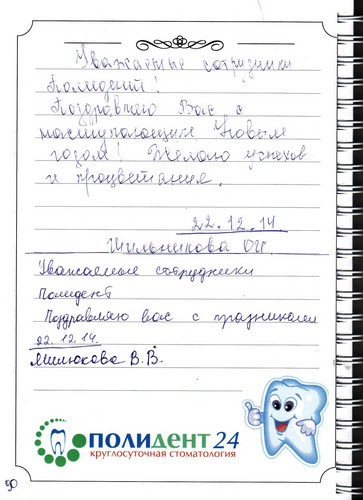 Уважаемые сотрудники
Полидент!
Поздравляю Вас с
наступающим Новым
годом! Желаю успехов
и процветания.
22.12.14
Уважаемые сотрудники
Полидент
Поздравляю вас с празником
22.12.14.
Милюкова В.В.
ПОЛИДЕНТ 24
круглосуточная стоматология